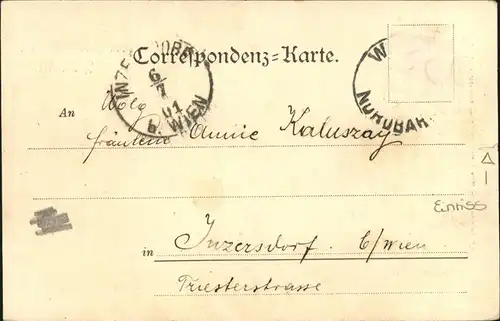 Correspondenz=Karte.
INZERSDORF
6/7
01
b. WIEN
W
NORDBAH
An
Fräulein Annie Kaluszay
Einriss
in Inzersdorf b/Wien
Triesterstrasse